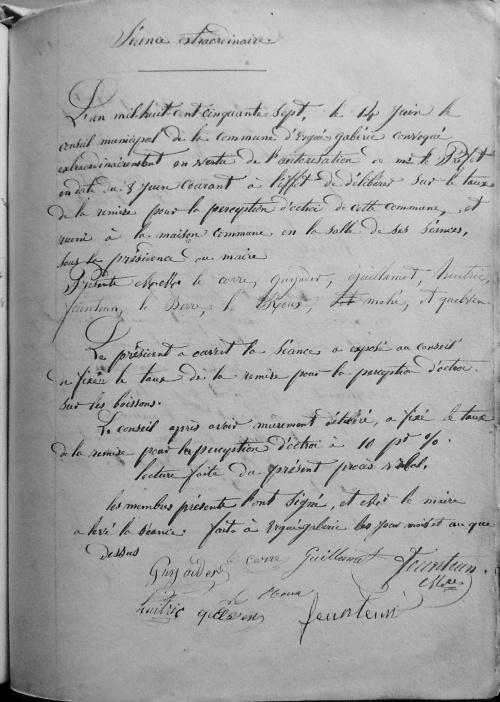 Séance extraordinaire.
L'an mil huit cent cinquante sept, le 14 Juin le
conseil municipal de la commune d'Ergué gabéric convoqué
extraordinairement en vertu de l'autorisation de mr le Préfet
en date du 8 Juin courant à l'effet de délibérer sur le taux
de la remise pour la perception d'octroi de cette commune, et
réuni à la maison commune en la salle de ses séances,
sous la présidence du maire
Présents le corre, gayader, guillamet, huitric,
Jeunteun, le Berre, le Roux, mahé, et quelven
Le président a ouvert la séance a exposé au conseil
a fixér le taux de la remise pour la perception d'octroi
sur les boissons.
Le conseil après avoir murement délibéré, a fixé le taux
de la remise pour la perception d'octroi à 10 pr %.
lecture faite du présent procès verbal,
les membres présents l'ont signé, et le maire
a levé la séance. faite à Ergué-gabéric les jour mois et an que
dessus
le corre Guillamet Jeunteun
Guyader Mre
huitric quelven le Roux Jeunteun